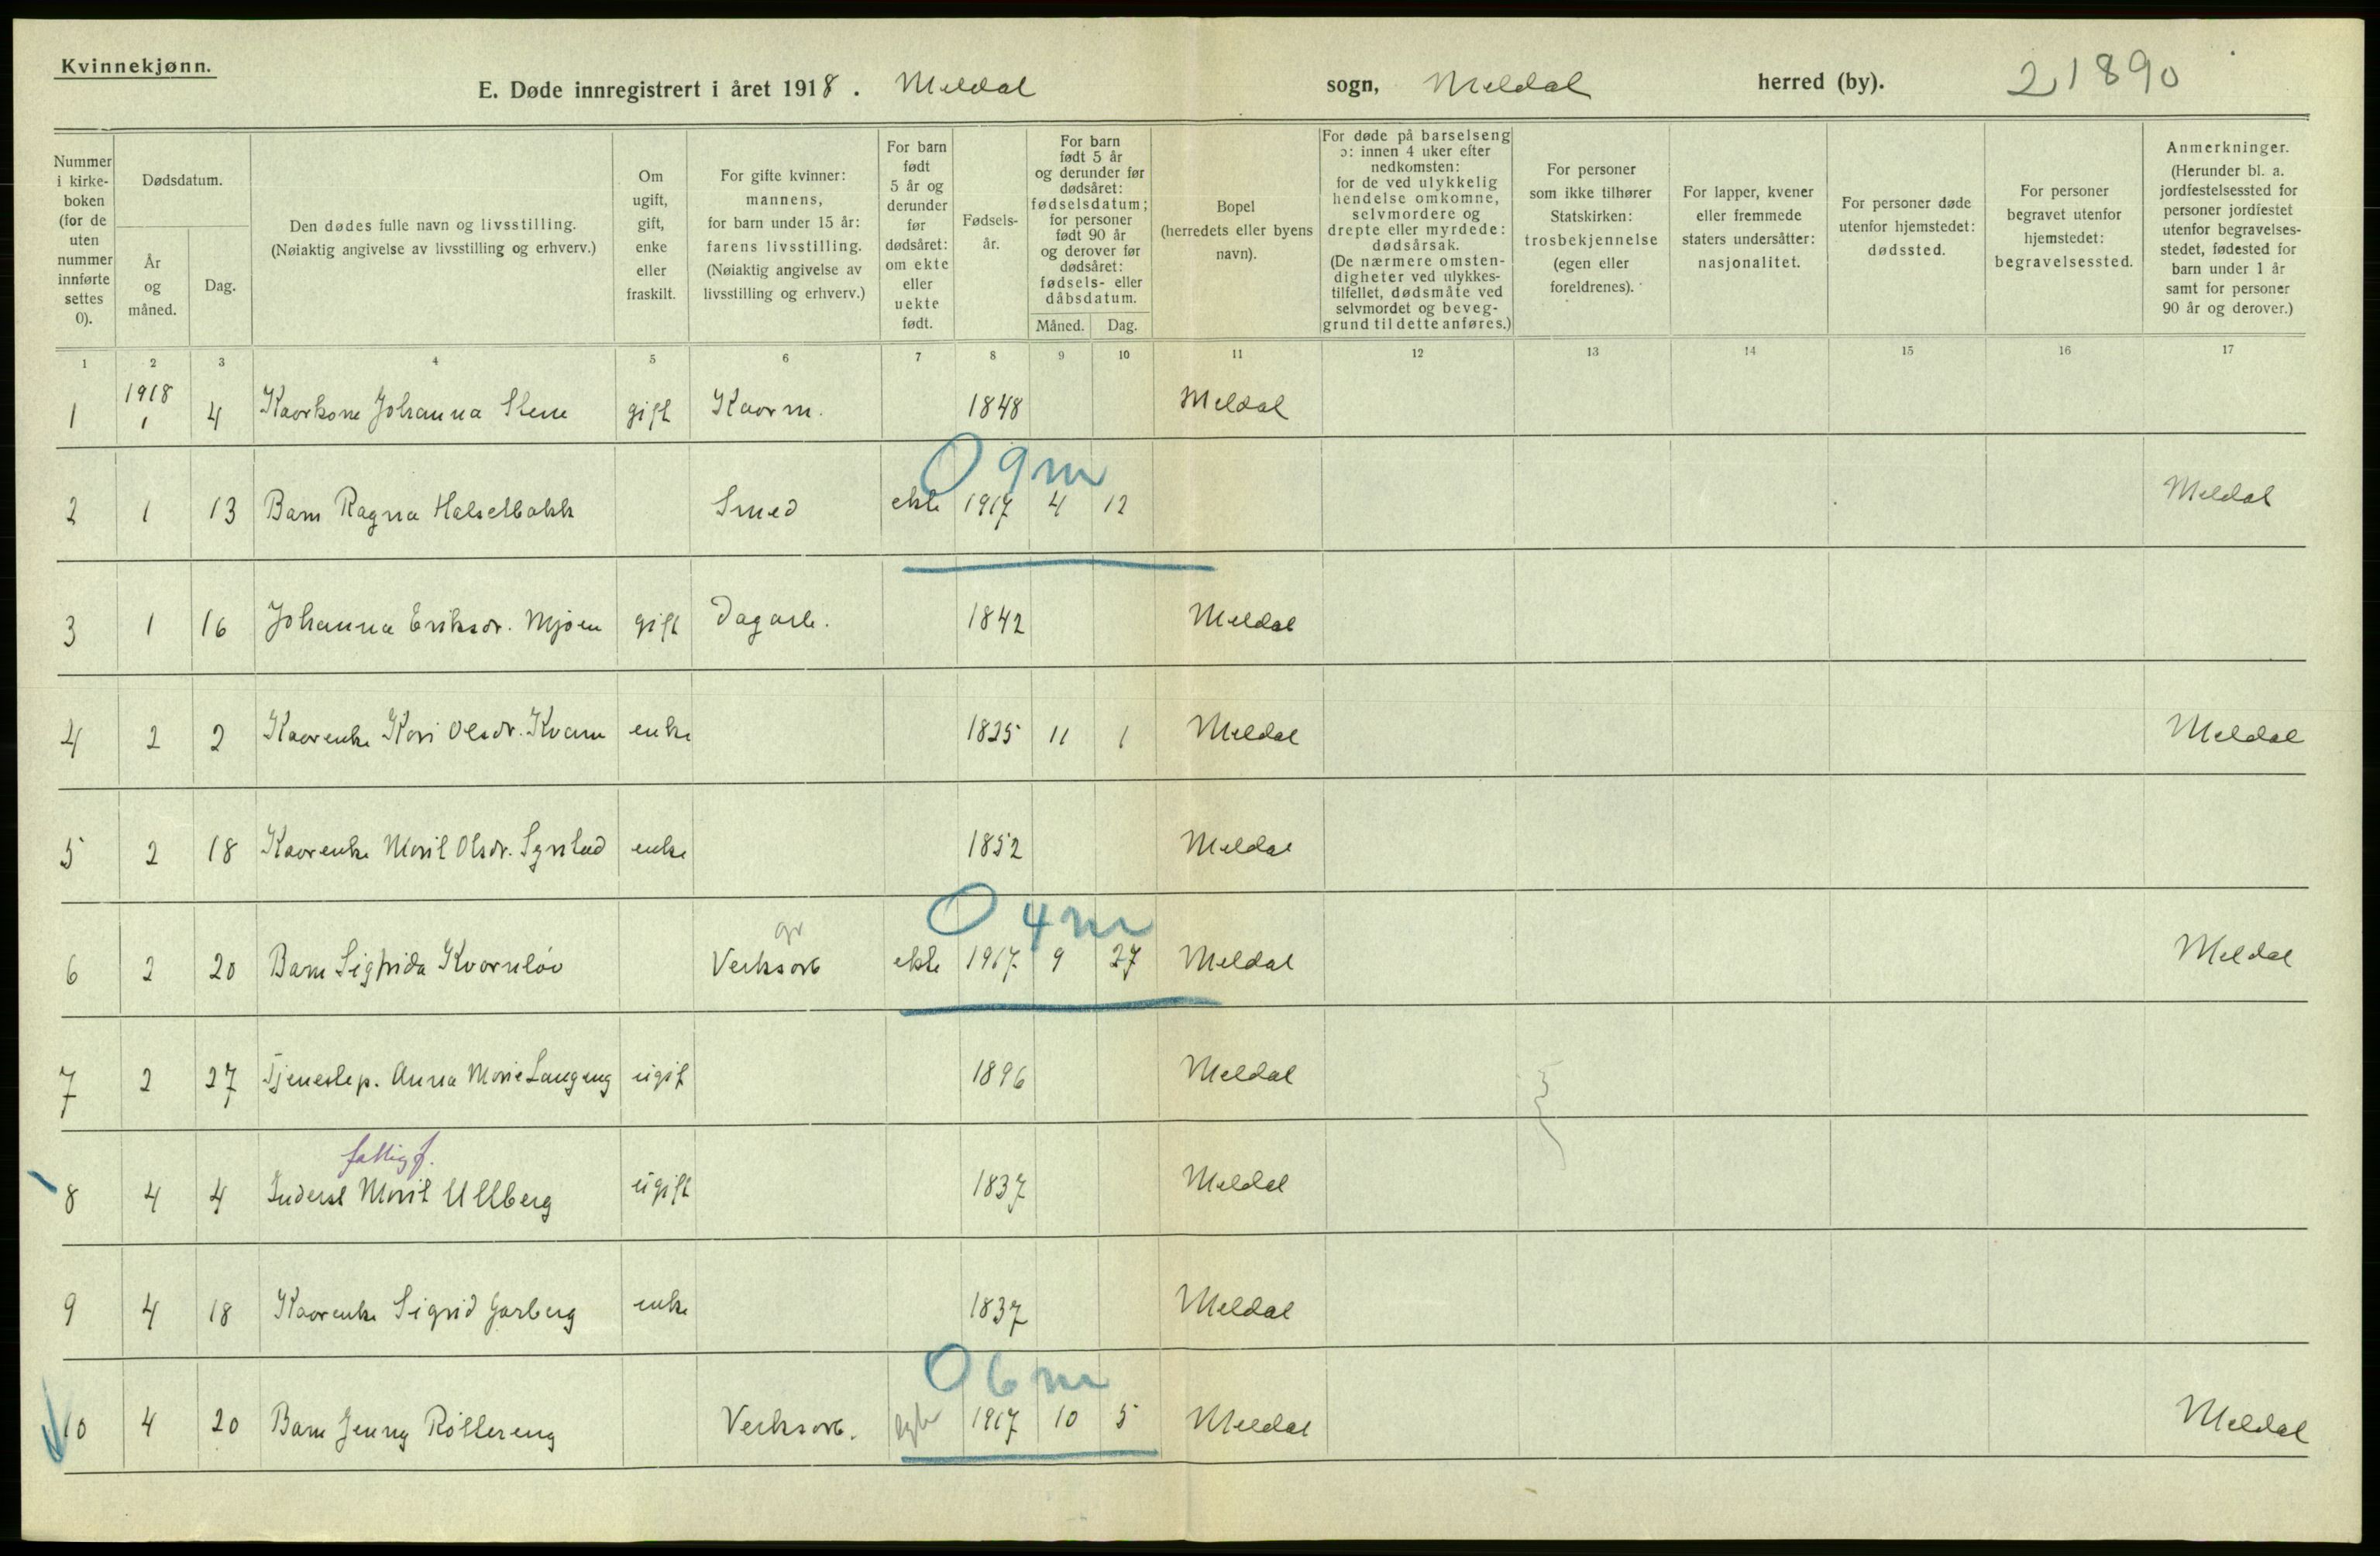 Kvinnekjønn.
E. Døde innregistrert i året 1918. Meldal sogn, Meldal herred (by). 21890
Nummer i kirke- boken (for de uten nummer innførte settes 0).
Dødsdatum.
År og måned.
Dag.
Den dødes fulle navn og livsstilling. (Nøiaktig angivelse av livsstilling og erhverv.)
Om ugift, gift, enke eller fraskilt.
For gifte kvinner: mannens, for barn under 15 år: farens livsstilling. (Nøiaktig angivelse av livsstilling og erhverv.)
For barn født 5 år og derunder før dødsåret: om ekte eller uekte født.
Fødsels- år.
For barn født 5 år og derunder før dødsåret: fødselsdatum; for personer født 90 år og derover før dødsåret: fødsels- eller dåbsdatum.
Måned.
Dag.
Bopel (herredets eller byens navn).
For døde på barselseng ɔ: innen 4 uker efter nedkomsten: for de ved ulykkelig hendelse omkomne, selvmordere og drepte eller myrdede: dødsårsak. (De nærmere omsten- digheter ved ulykkes- tilfellet, dødsmåte ved selvmordet og beveg- grund til dette anføres.)
For personer som ikke tilhører Statskirken: trosbekjennelse (egen eller foreldrenes).
For lapper, kvener eller fremmede staters undersåtter: nasjonalitet.
For personer døde utenfor hjemstedet: dødssted.
For personer begravet utenfor hjemstedet: begravelsessted.
Anmerkninger. (Herunder bl. a. jordfestelsessted for personer jordfestet utenfor begravelses- stedet, fødested for barn under 1 år samt for personer 90 år og derover.)
1 2 3 4 5 6 7 8 9 10 11 12 13 14 15 16 17
1918
1 1 4 Kaarkone Johanna Stene gift Kaarm. 1848 Meldal
0 9 m
2 1 13 Barn Ragna Halsetbakk Smed ekte 1917 4 12 Meldal
3 1 16 Johanna Eriksdr. Mjøen gift Dagarb. 1842 Meldal
4 2 2 Kaarenke Kari Olsdr. Kvam enke 1825 11 1 Meldal Meldal
5 2 18 Kaarenke Marit Olsdr. enke 1852 Meldal
0 4 m
gr
6 2 20 Barn Sigfrida Kvernløv Verksarb ekte 1917 9 27 Meldal Meldal
7 2 27 Tjenestep. Anna Marie Langeng ugift 1896 Meldal
fattigf.
8 4 4 Inderst Marit Ullberg ugift 1837 Meldal
9 4 18 Kaarenke Sigrid Garberg enke 1837 Meldal
0 6 m
10 4 20 Barn Jenny Røttereng Verksarb. 1917 10 5 Meldal Meldal